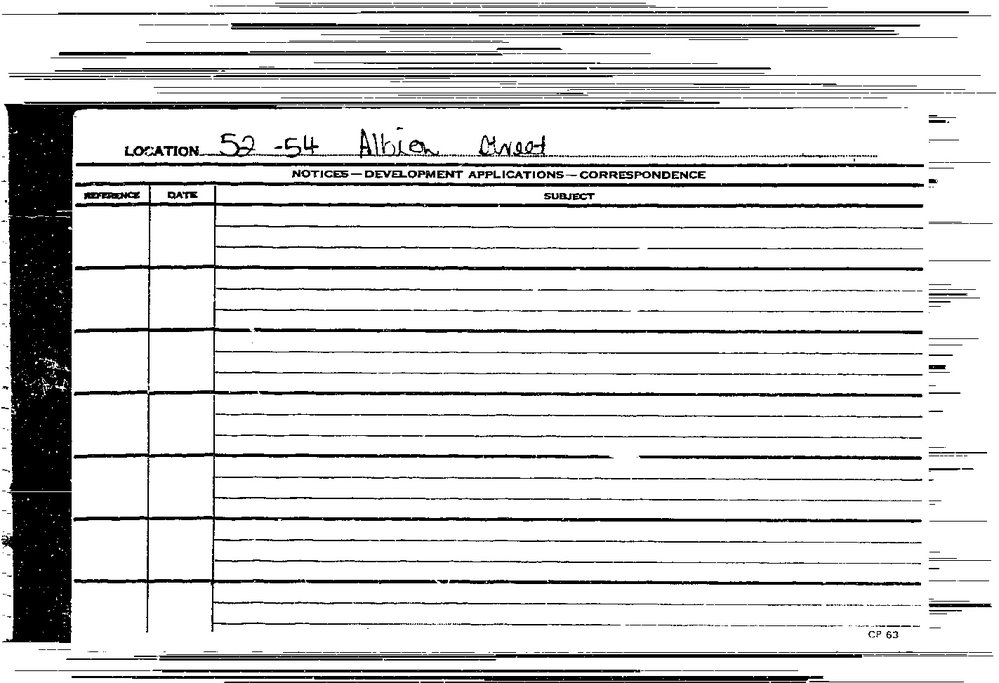 LOCATION 52 -54 Albion Street
NOTICES—DEVELOPMENT APPLICATIONS—CORRESPONDENCE
REFERENCE DATE SUBJECT
CP 63